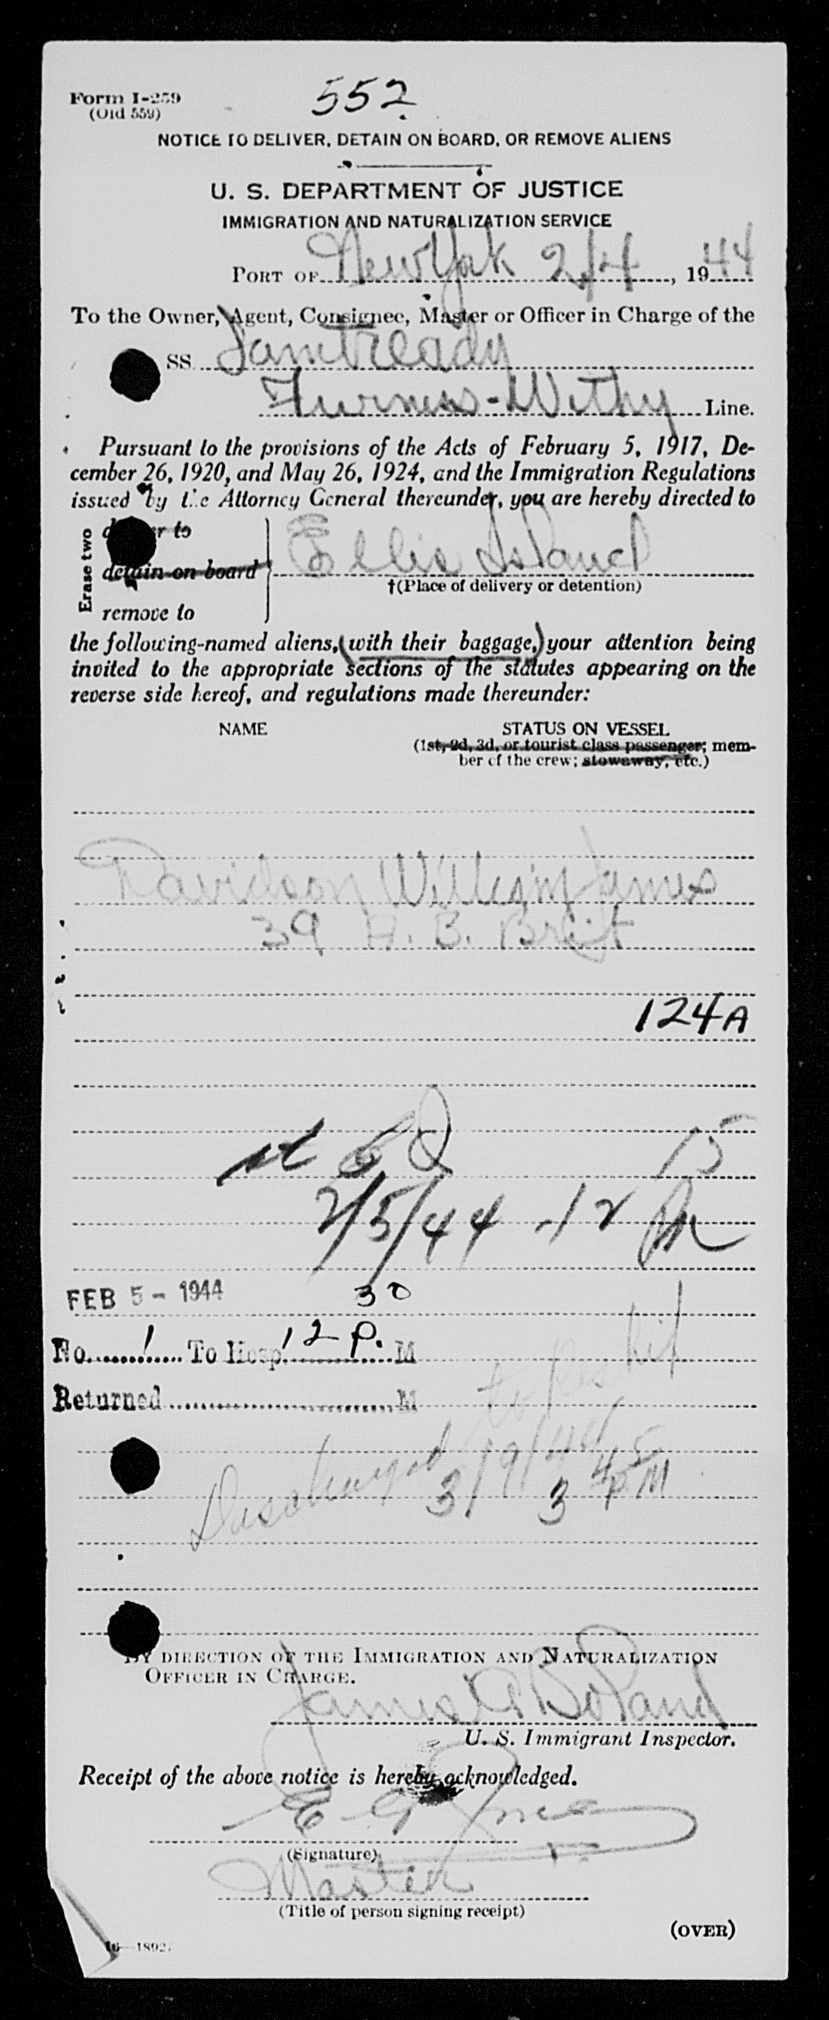 Form I-259
(Old 559)
552
NOTICE TO DELIVER, DETAIN ON BOARD, OR REMOVE ALIENS
U. S. DEPARTMENT OF JUSTICE
IMMIGRATION AND NATURALIZATION SERVICE
PORT OF New York 2/4, 1944
To the Owner, Agent, Consignee, Master or Officer in Charge of the
SS Samtready
Furness-Withy Line.
Pursuant to the provisions of the Acts of February 5, 1917, De-
cember 26, 1920, and May 26, 1924, and the Immigration Regulations
issued by the Attorney General thereunder, you are hereby directed to
Erase two
to
detain on board
Ellis Island
†(Place of delivery or detention)
remove to
the following-named aliens, (with their baggage,) your attention being
invited to the appropriate sections of the statutes appearing on the
reverse side hereof, and regulations made thereunder:
NAME
STATUS ON VESSEL
(1st, 2d, 3d, or tourist class passenger; mem-
ber of the crew; stowaway, etc.)
Davidson William James
39 A. B. Brit
124A
15
2/5/44 - 12
FEB 5 - 1944
30
No. 1 To Hosp. 12 P. M
Returned M
to
Discharged 3/9/44
3 45 PM
BY DIRECTION OF THE IMMIGRATION AND NATURALIZATION
OFFICER IN CHARGE.
James A Boland
U. S. Immigrant Inspector.
Receipt of the above notice is hereby acknowledged.
E G
(Signature)
Master
(Title of person signing receipt)
(OVER)